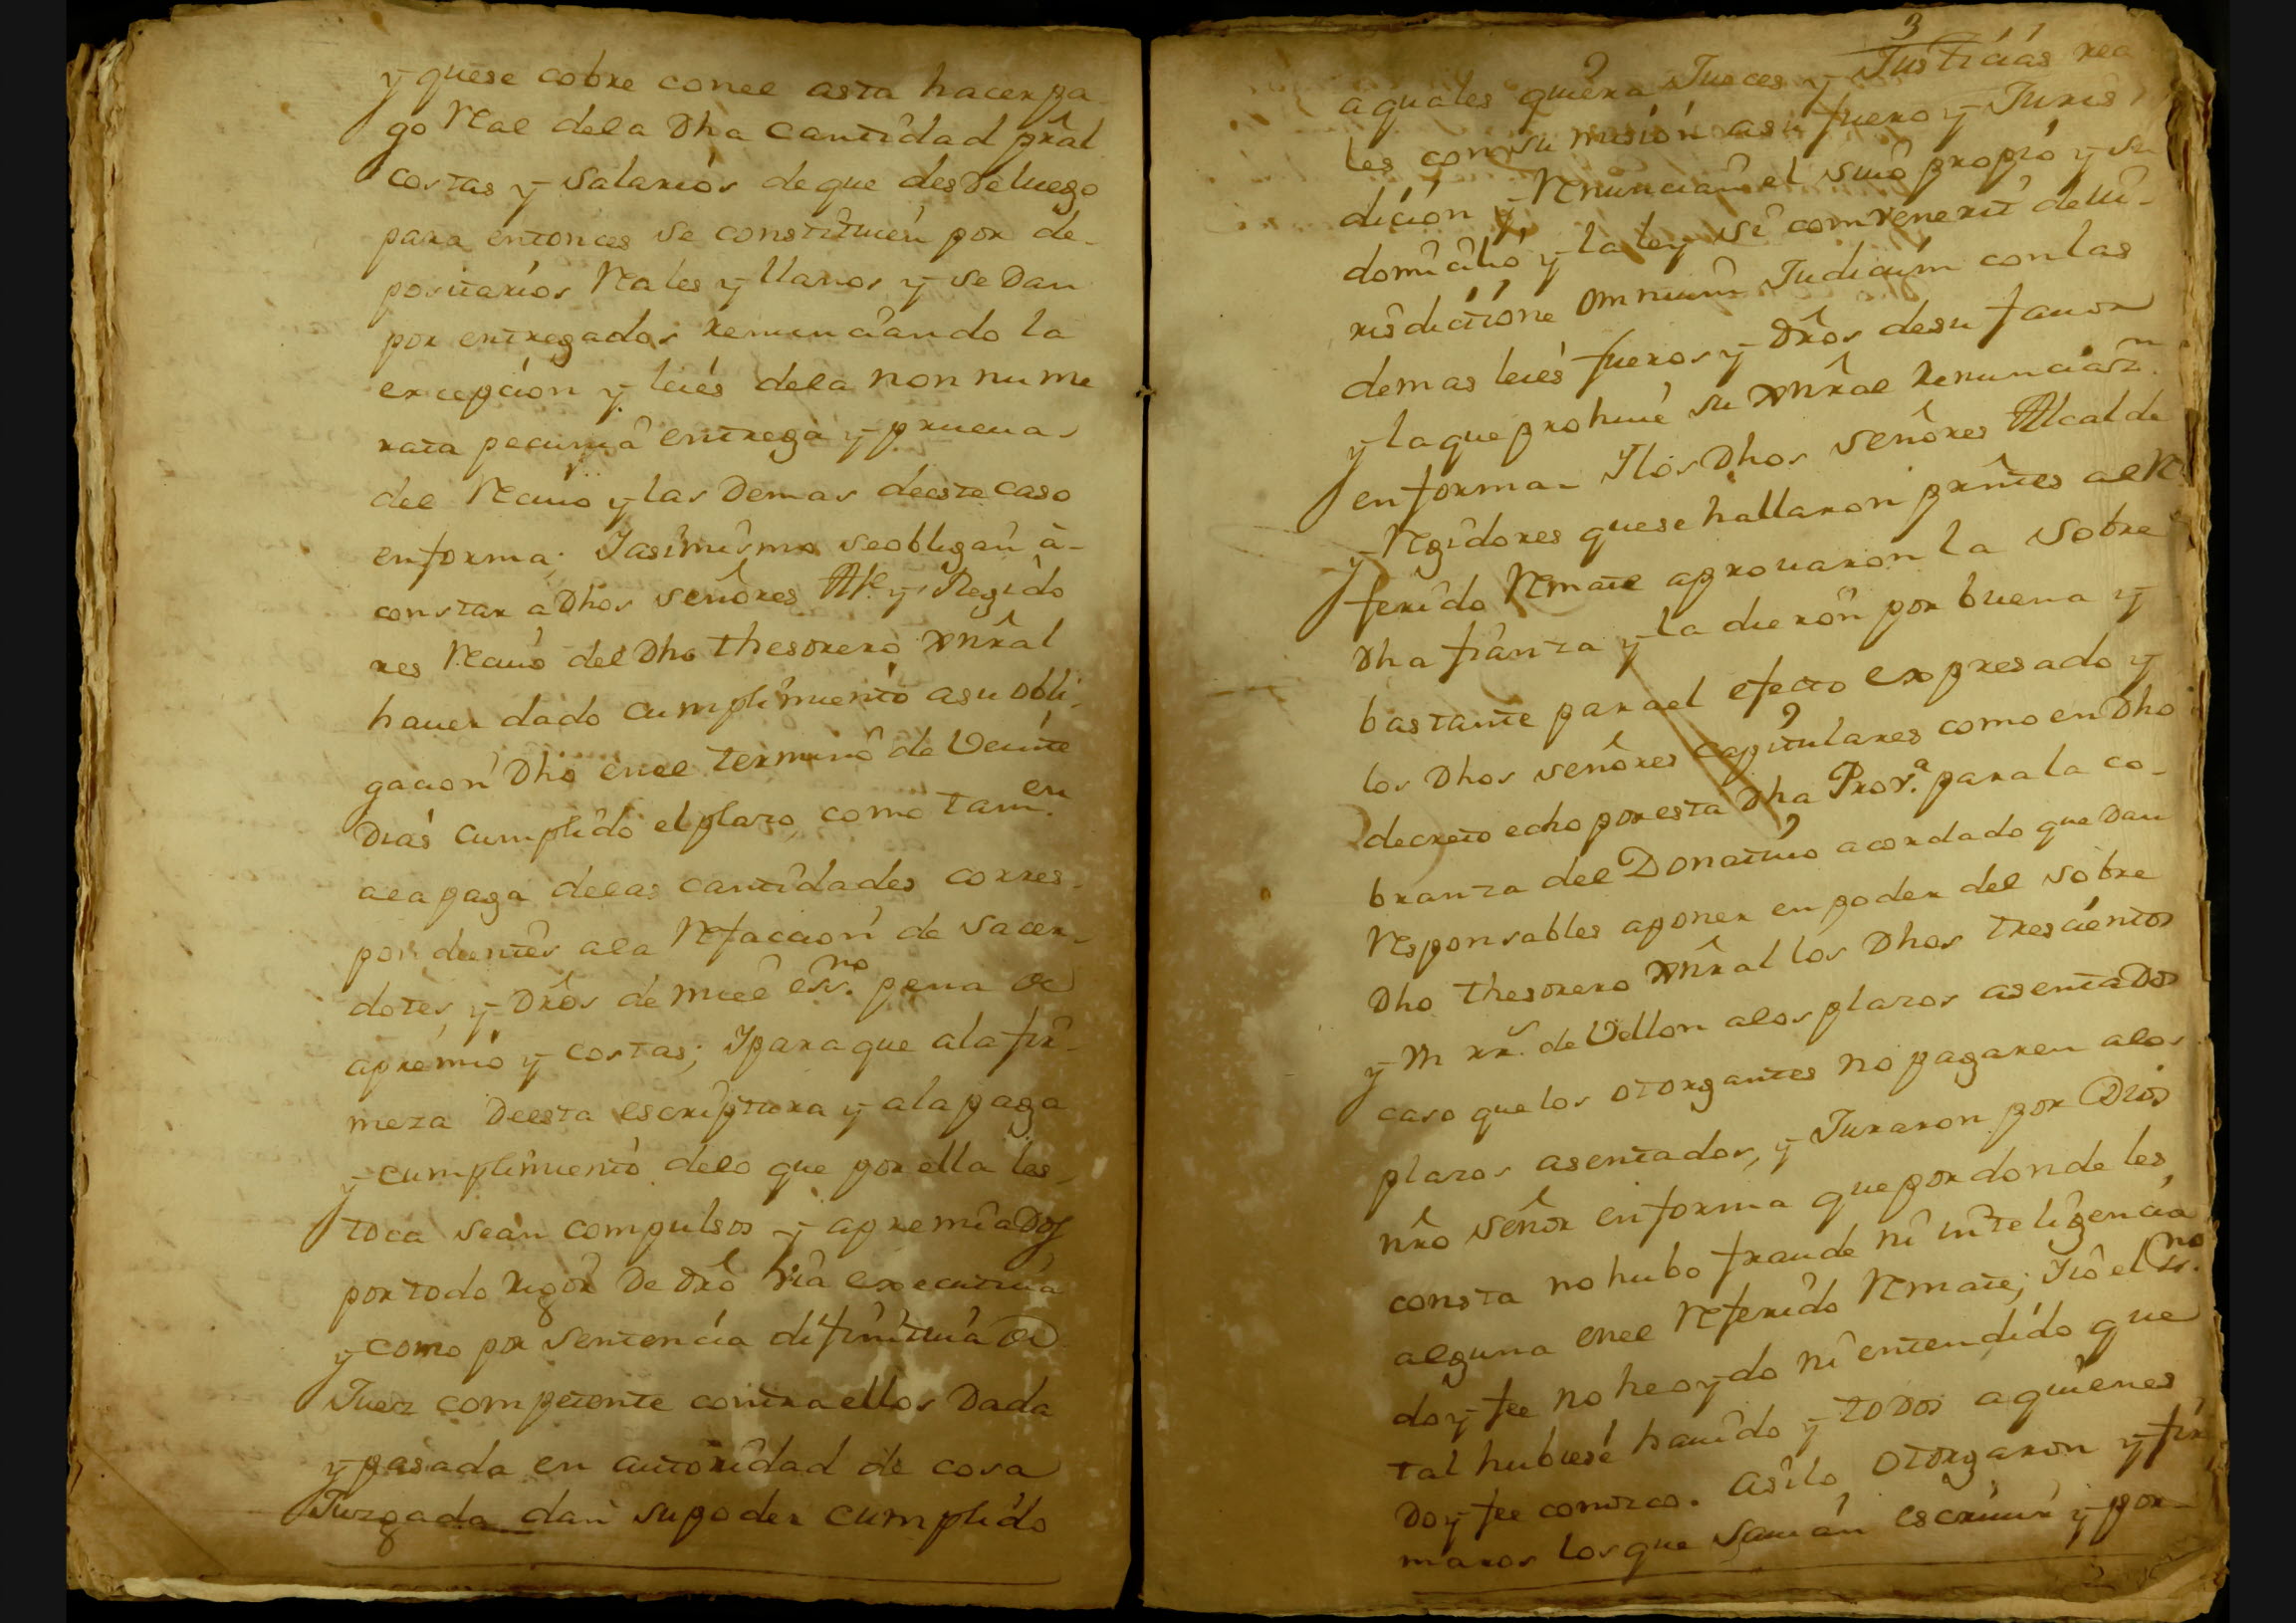 y quese cobre conel asta hacerpa
go Real dela Dha Cantidad prâl
costas y salarios deque desdeluego
para entonces se constituien por de-
positarios Reales y llanos y se Dan
por entregados renunciando la
excepcion y leies dela non nume
rata pecunia entrega y prueua
del Reciuo y las Demas deeste caso
enforma; Jasimismo seobligan à-
constar a Dhos señores Alce. y Regido
res Reciuo del Dho thesorero Gnrâl
hauer dado cumplimiento asu obli-
gacion Dho enel termino de Veinte
Dias cumplido elplazo como tamen.
ala paga delas cantidades corres-
pondientes ala Refaccion de sacer-
dotes y Drôs de mi el essno. pena de
apremio y costas; Iparaque ala fir-
meza Deesta escriptura y ala paga
y cumplimiento delo que por ella les
toca sean compulsos y apremiados
por todo rigor De drô via executiua
y como por sentencia difinitiua de
Juez competente contraellos Dada
y pasada en autoridad de cosa
Juzgada dan supoder cumplido
3
aquales quiera Jueces y Justicias rea
les con su mision asu fuero y Juris
dicion y Renuncian el suio propio y su
domicilio y la ley si comvenerit de Iu-
risdictione omnium Judicum con las
demas leies fueros y Drôs desu fauor
y laque prohiue su Gnrâl Renunciazn.
enforma- Ilos Dhos señores Alcalde
y Regidores quese hallaron prêntes al Re
ferido Remate aprouaron la sobre
Dha fianza y la dieron por buena y
bastante parael efecto expresado y
los Dhos señores capitulares como en Dho
decreto echo por esta Dha Prova. para la co-
branza del Donatiuo acordado que Dan
Responsables aponer en poder del sobre
Dho thesorero Gnrâl los Dhos trescientos
y M rrs. de Vellon alos plazos asentados
caso que los otorgantes no pagaren alos
plazos asentados, y Juraron por Dios
nrô señor enforma que por donde les
consta no hubo fraude ni inteligencia
alguna enel Referido Remate; Iio el Esno.
doy fee no he oydo ni entendido que
tal hubiese hauido y todos aquienes
Doy fee conozco. asilo otorgaron y fir
maron los que sauian escriuir y por-